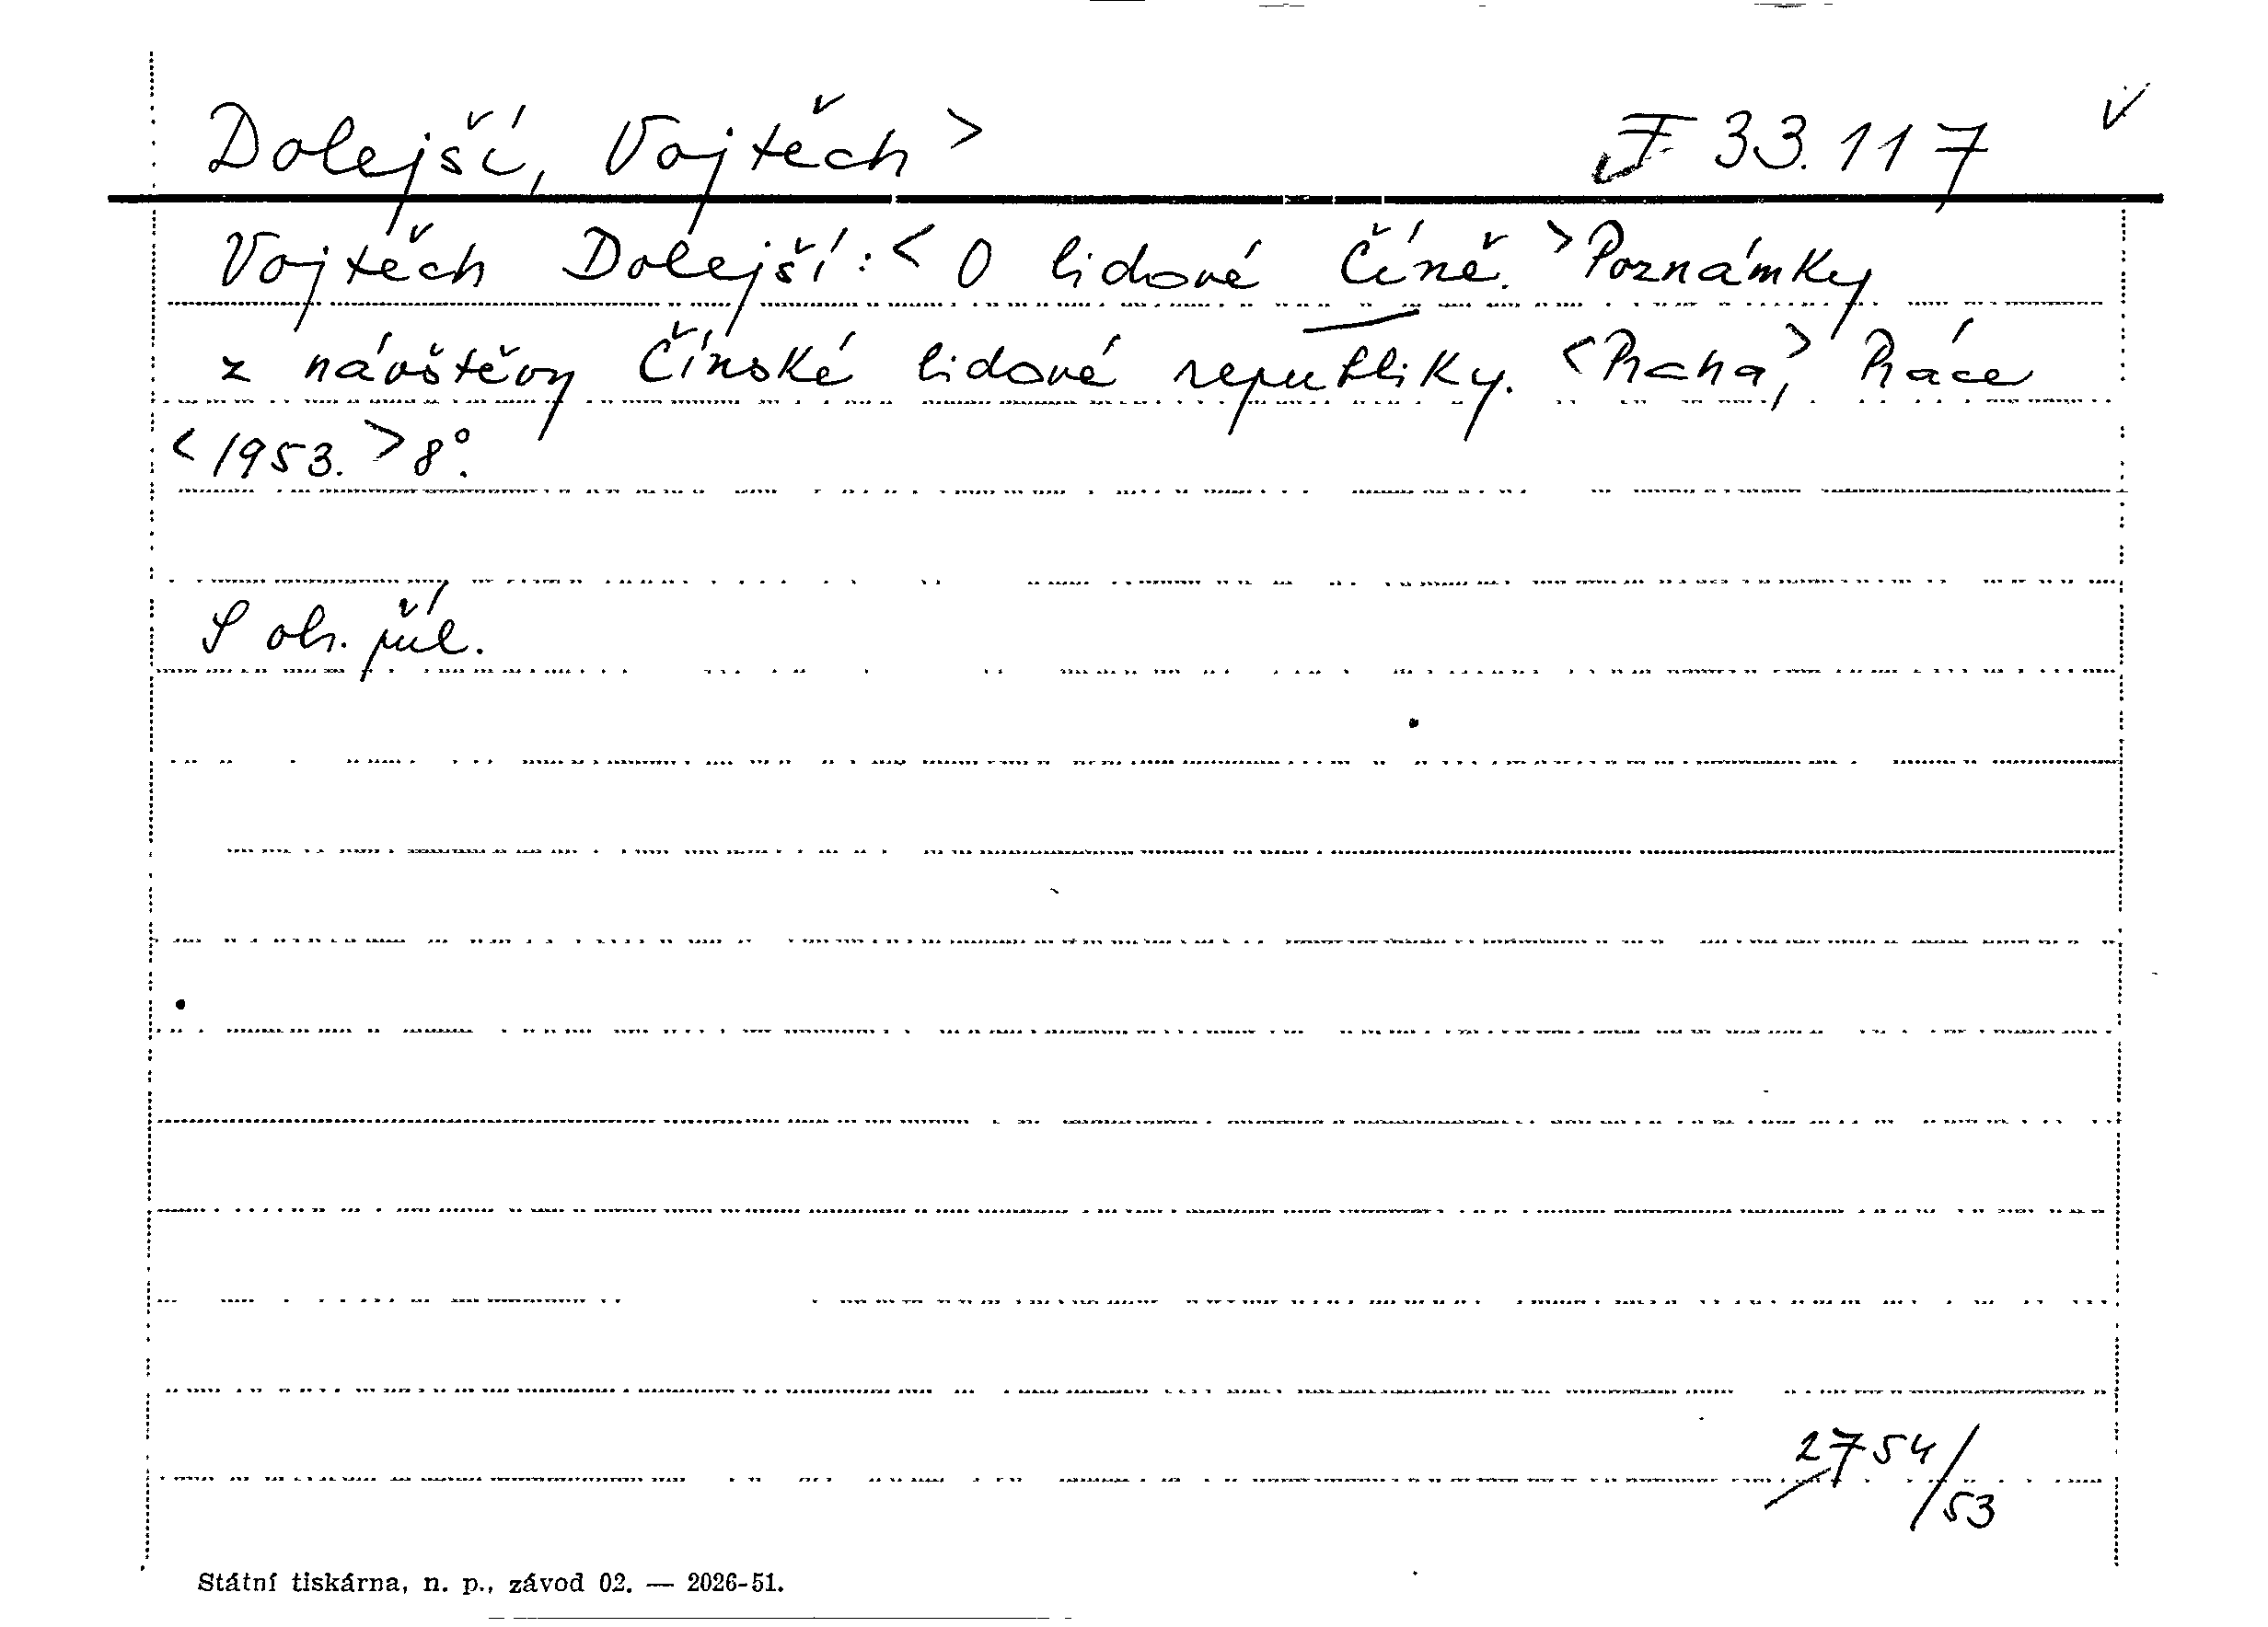 Dolejší, Vojtěch > F 33.117 v
Vojtěch Dolejší: < O lidové Číně. > Poznámky
z návštěvy Čínské lidové republiky. < Praha, > Práce
< 1953. > 8°.
S obr. příl.
2754/53
Státní tiskárna, n. p., závod 02. — 2026-51.